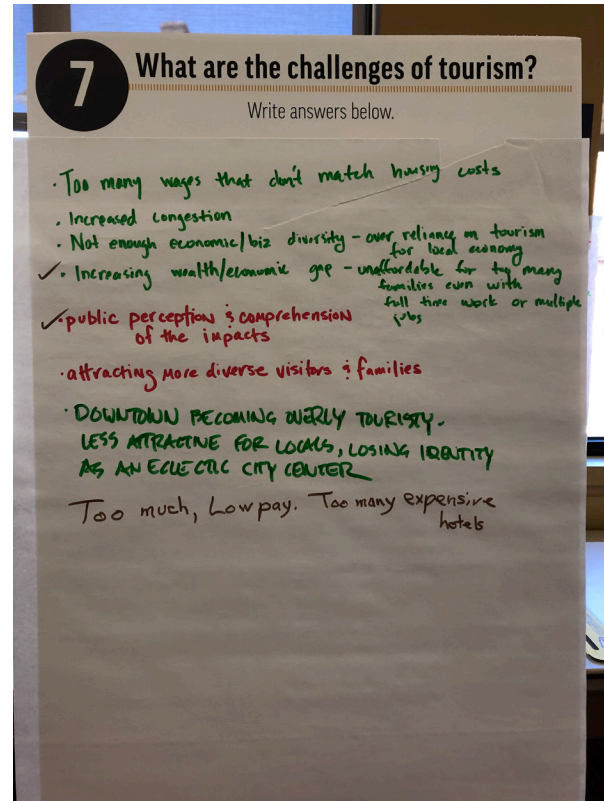 7
What are the challenges of tourism?
Write answers below.
· Too many wages that don't match housing costs
· Increased congestion
· Not enough economic/biz diversity – over reliance on tourism
for local economy
✓· Increasing wealth/economic gap – unaffordable for too many
families even with
full time work or multiple
jobs
✓· public perception & comprehension
of the impacts
· attracting more diverse visitors & families
· DOWNTOWN BECOMING OVERLY TOURISTY.
LESS ATTRACTIVE FOR LOCALS, LOSING IDENTITY
AS AN ECLECTIC CITY CENTER
Too much, Low pay. Too many expensive
hotels